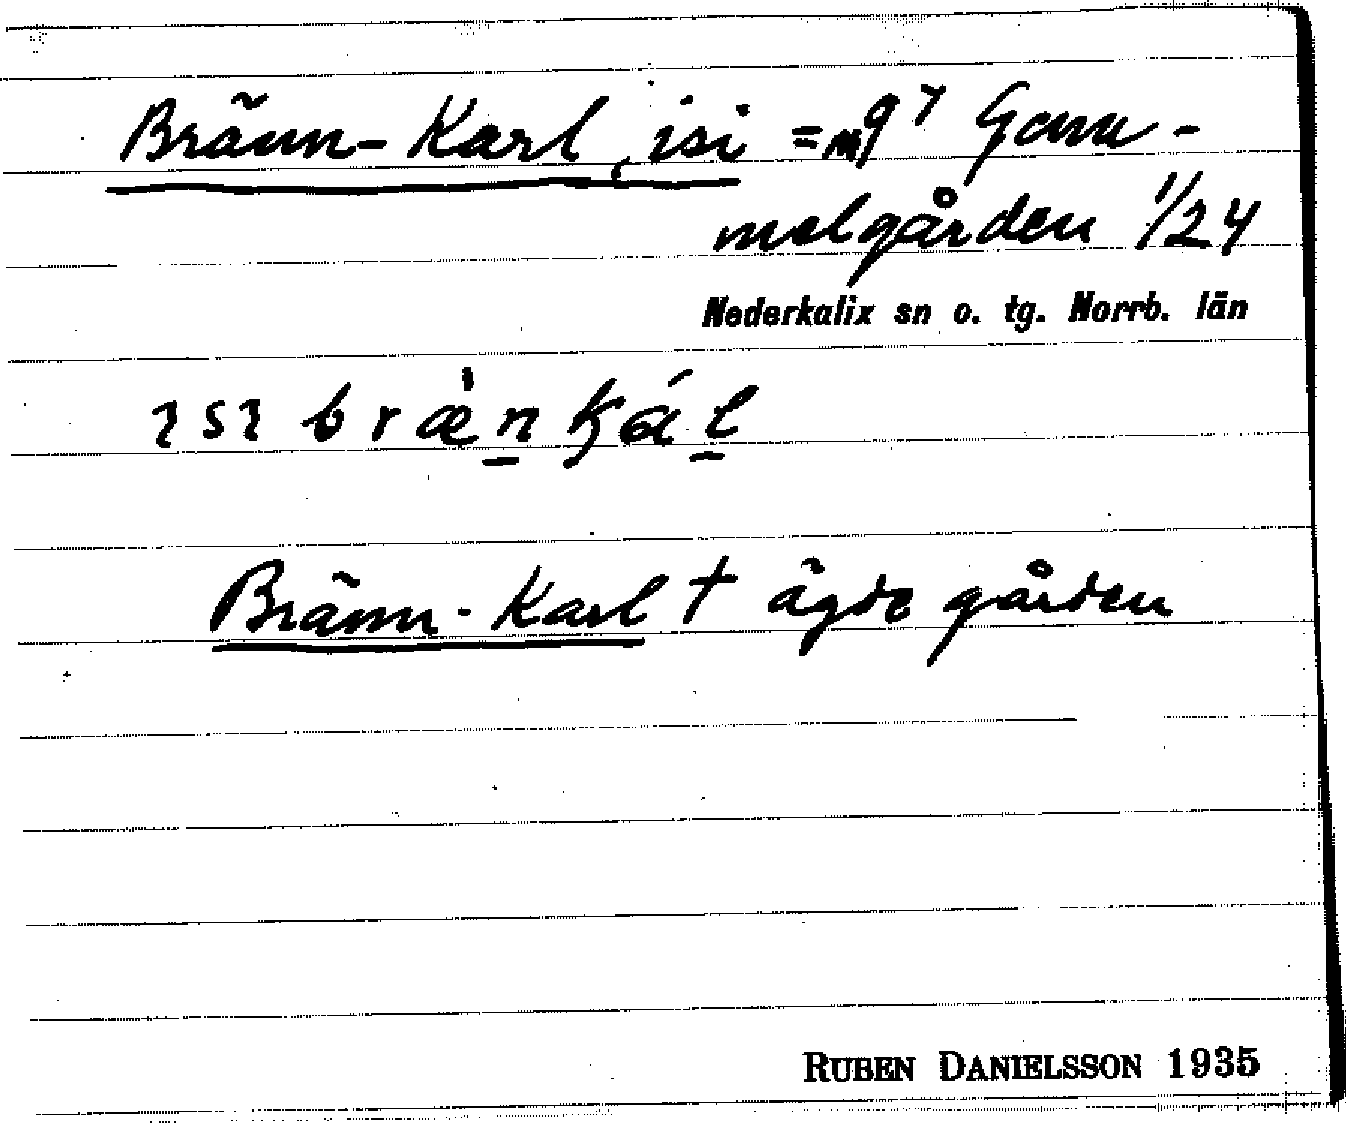 Bränn-Karl, isi = mg⁷ Gam-
melgården 1/24
Nederkalix sn o. tg. Norrb. län
ısı bræ̀n ḱál
Bränn-Karl † ägde gården
RUBEN DANIELSSON 1935